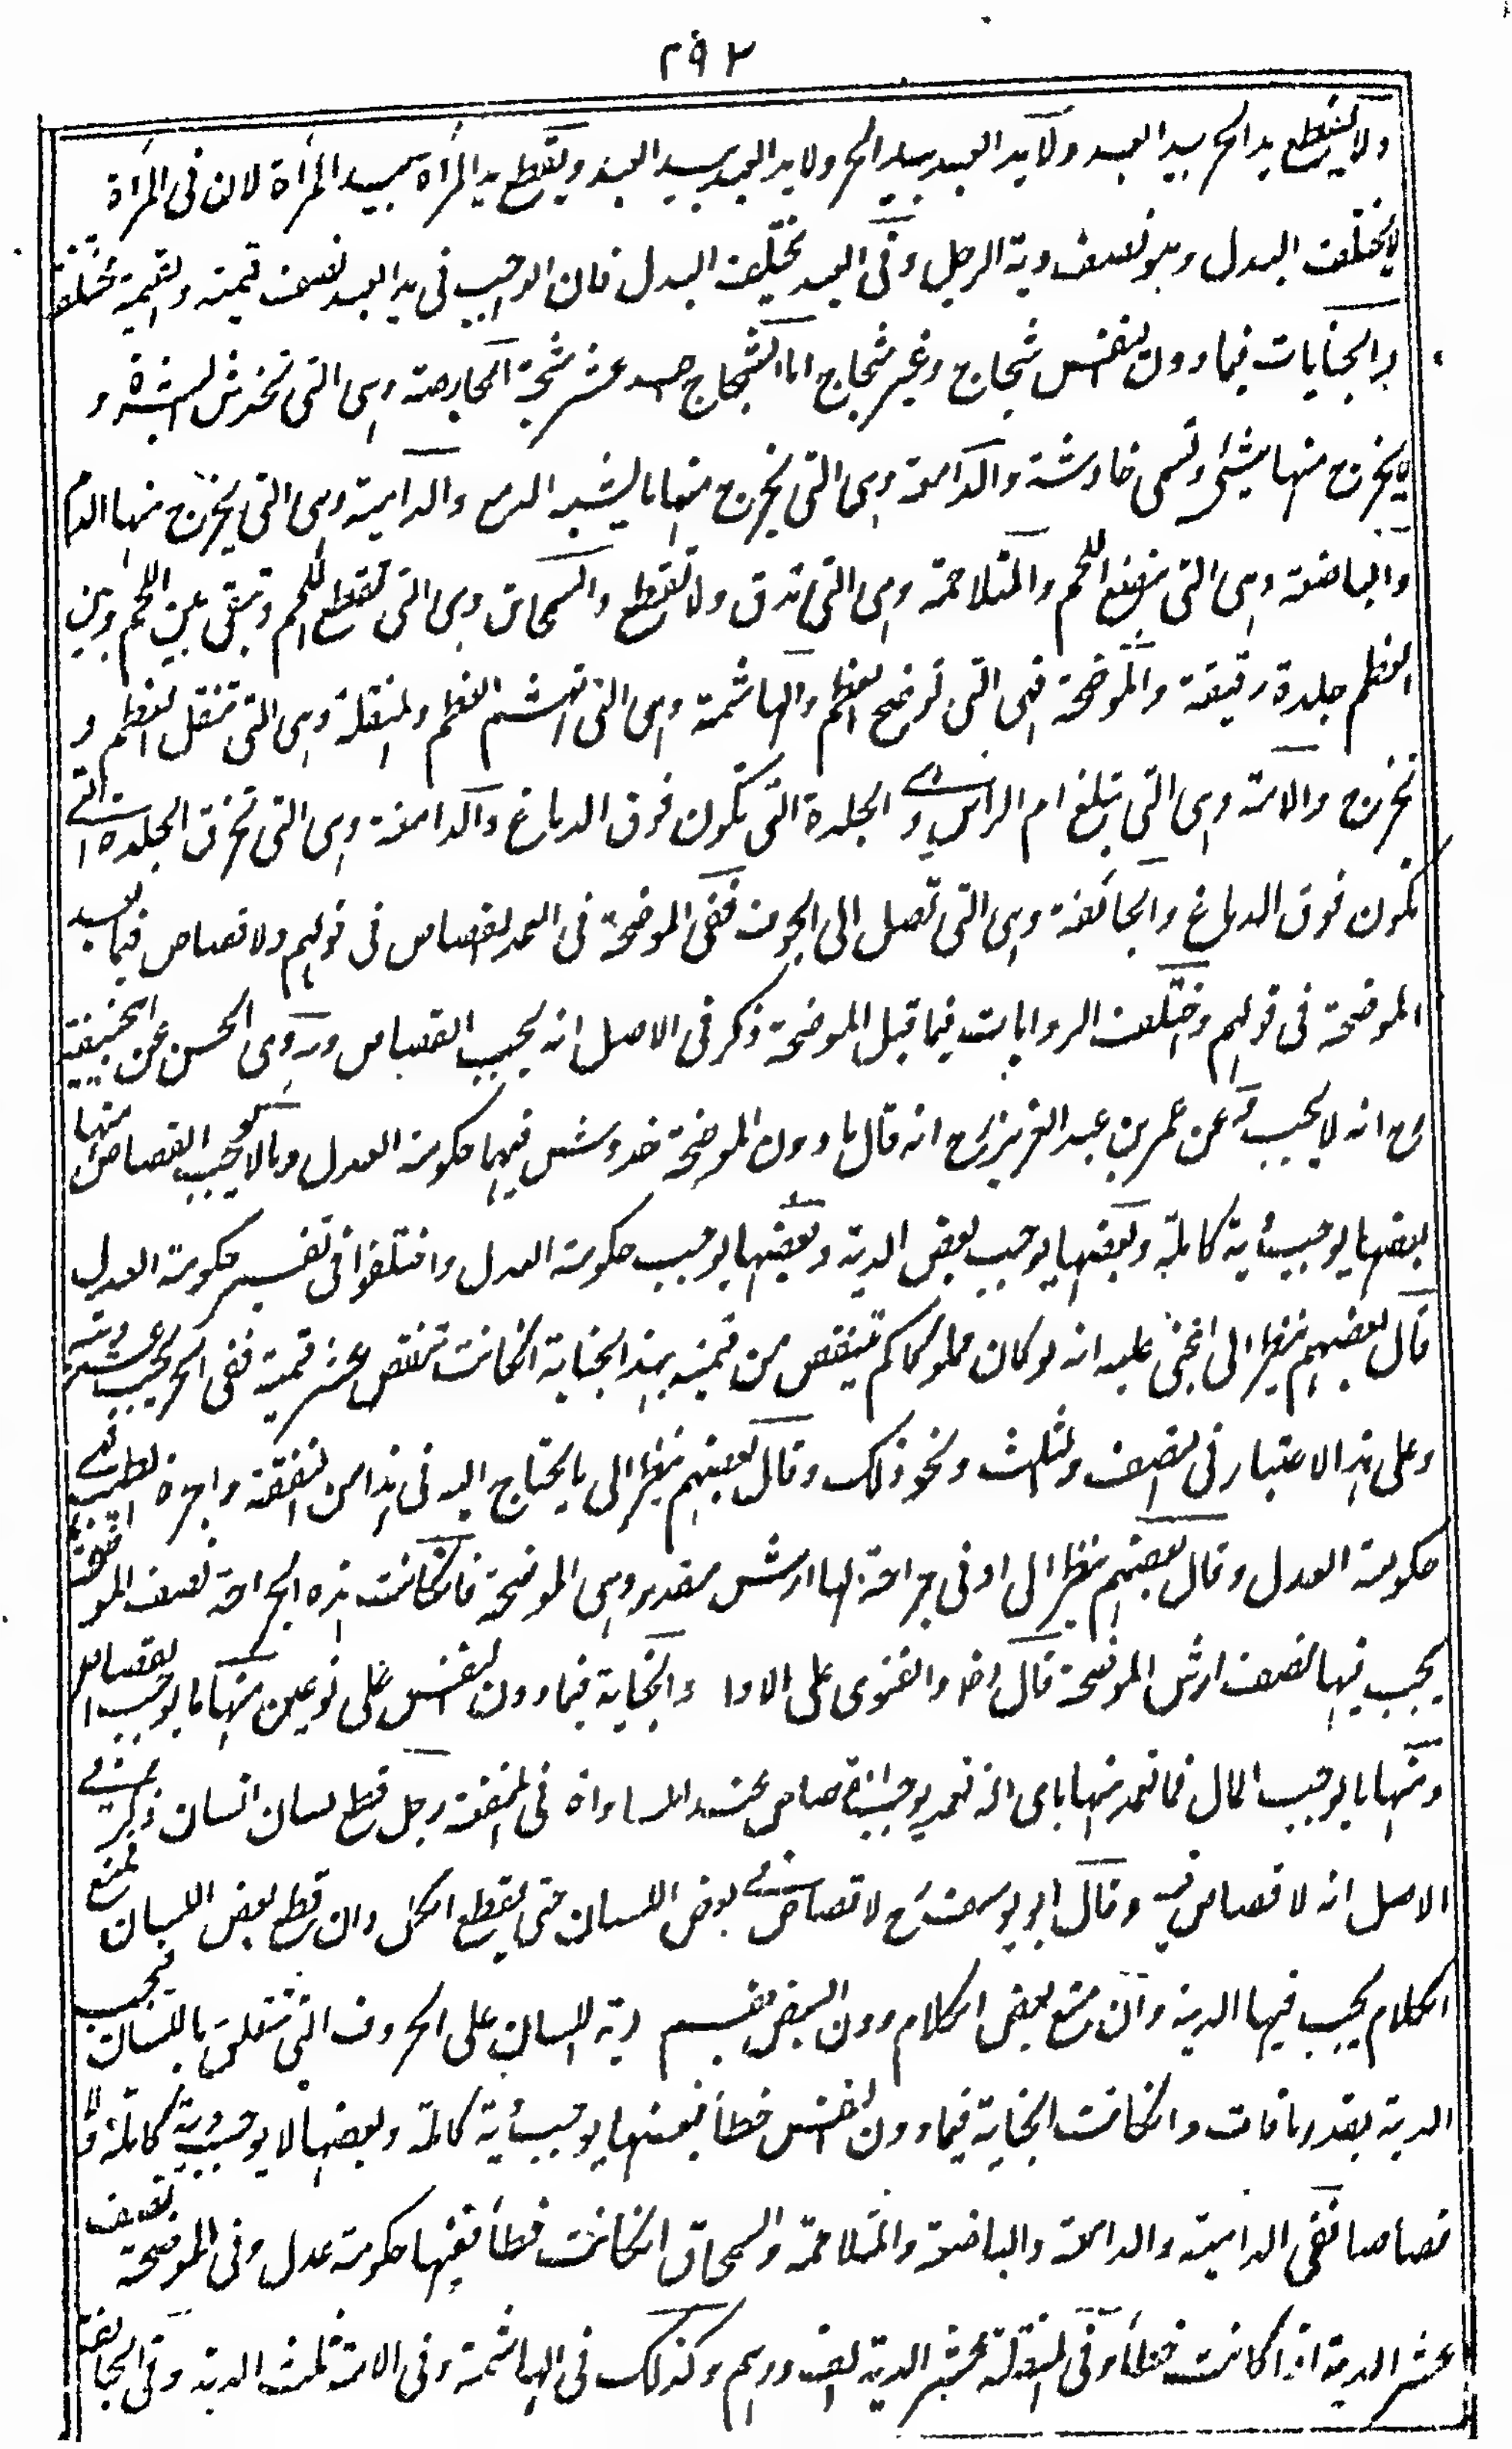 ٢٩٣
ولا يقطع يد الحر بيد العبد ولا يد العبد بيد الحر ولا يد العبد بيد العبد ويقطع يد المرأة بيد المرأة لان في المرأة
لا يختلف البدل وهو نصف دية الرجل وفي العبد يختلف البدل فان الواجب في يد العبد نصف قيمته والقيمة مختلفة
والجنايات فيما دون النفس شجاج وغير شجاج اما الشجاج احد عشر شجة الحارصة وهى التي تخدش البشرة و
لا يخرج منها شيئ وتسمى خادشة والدامعة وهى التي يخرج منها ما يشبه الدمع والدامية وهى التي يخرج منها الدم
والباضعة وهى التي تبضع اللحم والمتلاحمة وهى التي تدق ولا تقطع والسمحاق وهى التي تقطع اللحم وتبقى بين اللحم وبين
العظم جلدة رقيقة والموضحة فهى التي توضح العظم والهاشمة وهى التي تهشم العظم والمنقلة وهى التي تنقل العظم و
تخرج والامة وهى التي تبلغ ام الراس وهى الجلدة التي تكون فوق الدماغ والدامغة وهى التي تخرق الجلدة التي
تكون فوق الدماغ والجائفة وهى التي تصل الى الجوف ففي الموضحة في العمد القصاص في قولهم ولا قصاص فيما بعد
الموضحة في قولهم واختلفت الروايات فيما قبل الموضحة ذكر في الاصل انه يجب القصاص وروى الحسن عن ابيحنيفة
رح انه لا يجب وعن عمر بن عبد العزيز رح انه قال ما دون الموضحة خدوش فيها حكومة العدل وما لا يجب القصاص منها
بعضها يوجب دية كاملة وبعضها يوجب بعض الدية وبعضها يوجب حكومة العدل واختلفوا في تفسير حكومة العدل
قال بعضهم ينظر الى المجنى عليه انه لو كان مملوكا كم ينتقص من قيمته بهذه الجناية انكانت تنقص عشر قيمته ففي الحر يجب عشر ديته
وعلى هذا الاعتبار في النصف والثلث ونحو ذلك وقال بعضهم ينظر الى ما يحتاج اليه في هذا من النفقة واجرة الطبيب فهى
حكومة العدل وقال بعضهم ينظر الى ادنى جراحة لها ارش مقدر وهى الموضحة فانكانت هذه الجراحة نصف الموضحة
يجب فيها نصف ارش الموضحة قال رض والفتوى على الاول والجناية فيما دون النفس على نوعين منها ما يوجب القصاص
ومنها ما يوجب المال فالعمد منها باى الة تعمد يوجب القصاص عند المساواة في المنفعة رجل قطع لسان انسان ذكر في
الاصل انه لا قصاص فيه وقال ابو يوسف رح لا قصاص في بعض اللسان حتى يقطع الكل وان قطع بعض اللسان فمنع
الكلام يجب فيها الدية وان منع بعض الكلام دون البعض يقسم دية اللسان على الحروف التي تتعلق باللسان فيجب
الدية بقدر ما فات وانكانت الجناية فيما دون النفس خطأ فبعضها يوجب دية كاملة وبعضها لا يوجب دية كاملة ولا
قصاصا ففي الدامية والدامعة والباضعة والمتلاحمة والسمحاق انكانت خطأ ففيها حكومة عدل وفي الموضحة نصف
عشر الدية اذا كانت خطأ وفي المنقلة عشر الدية الف درهم وكذلك في الهاشمة وفي الامة ثلث الدية وفي الجائفة